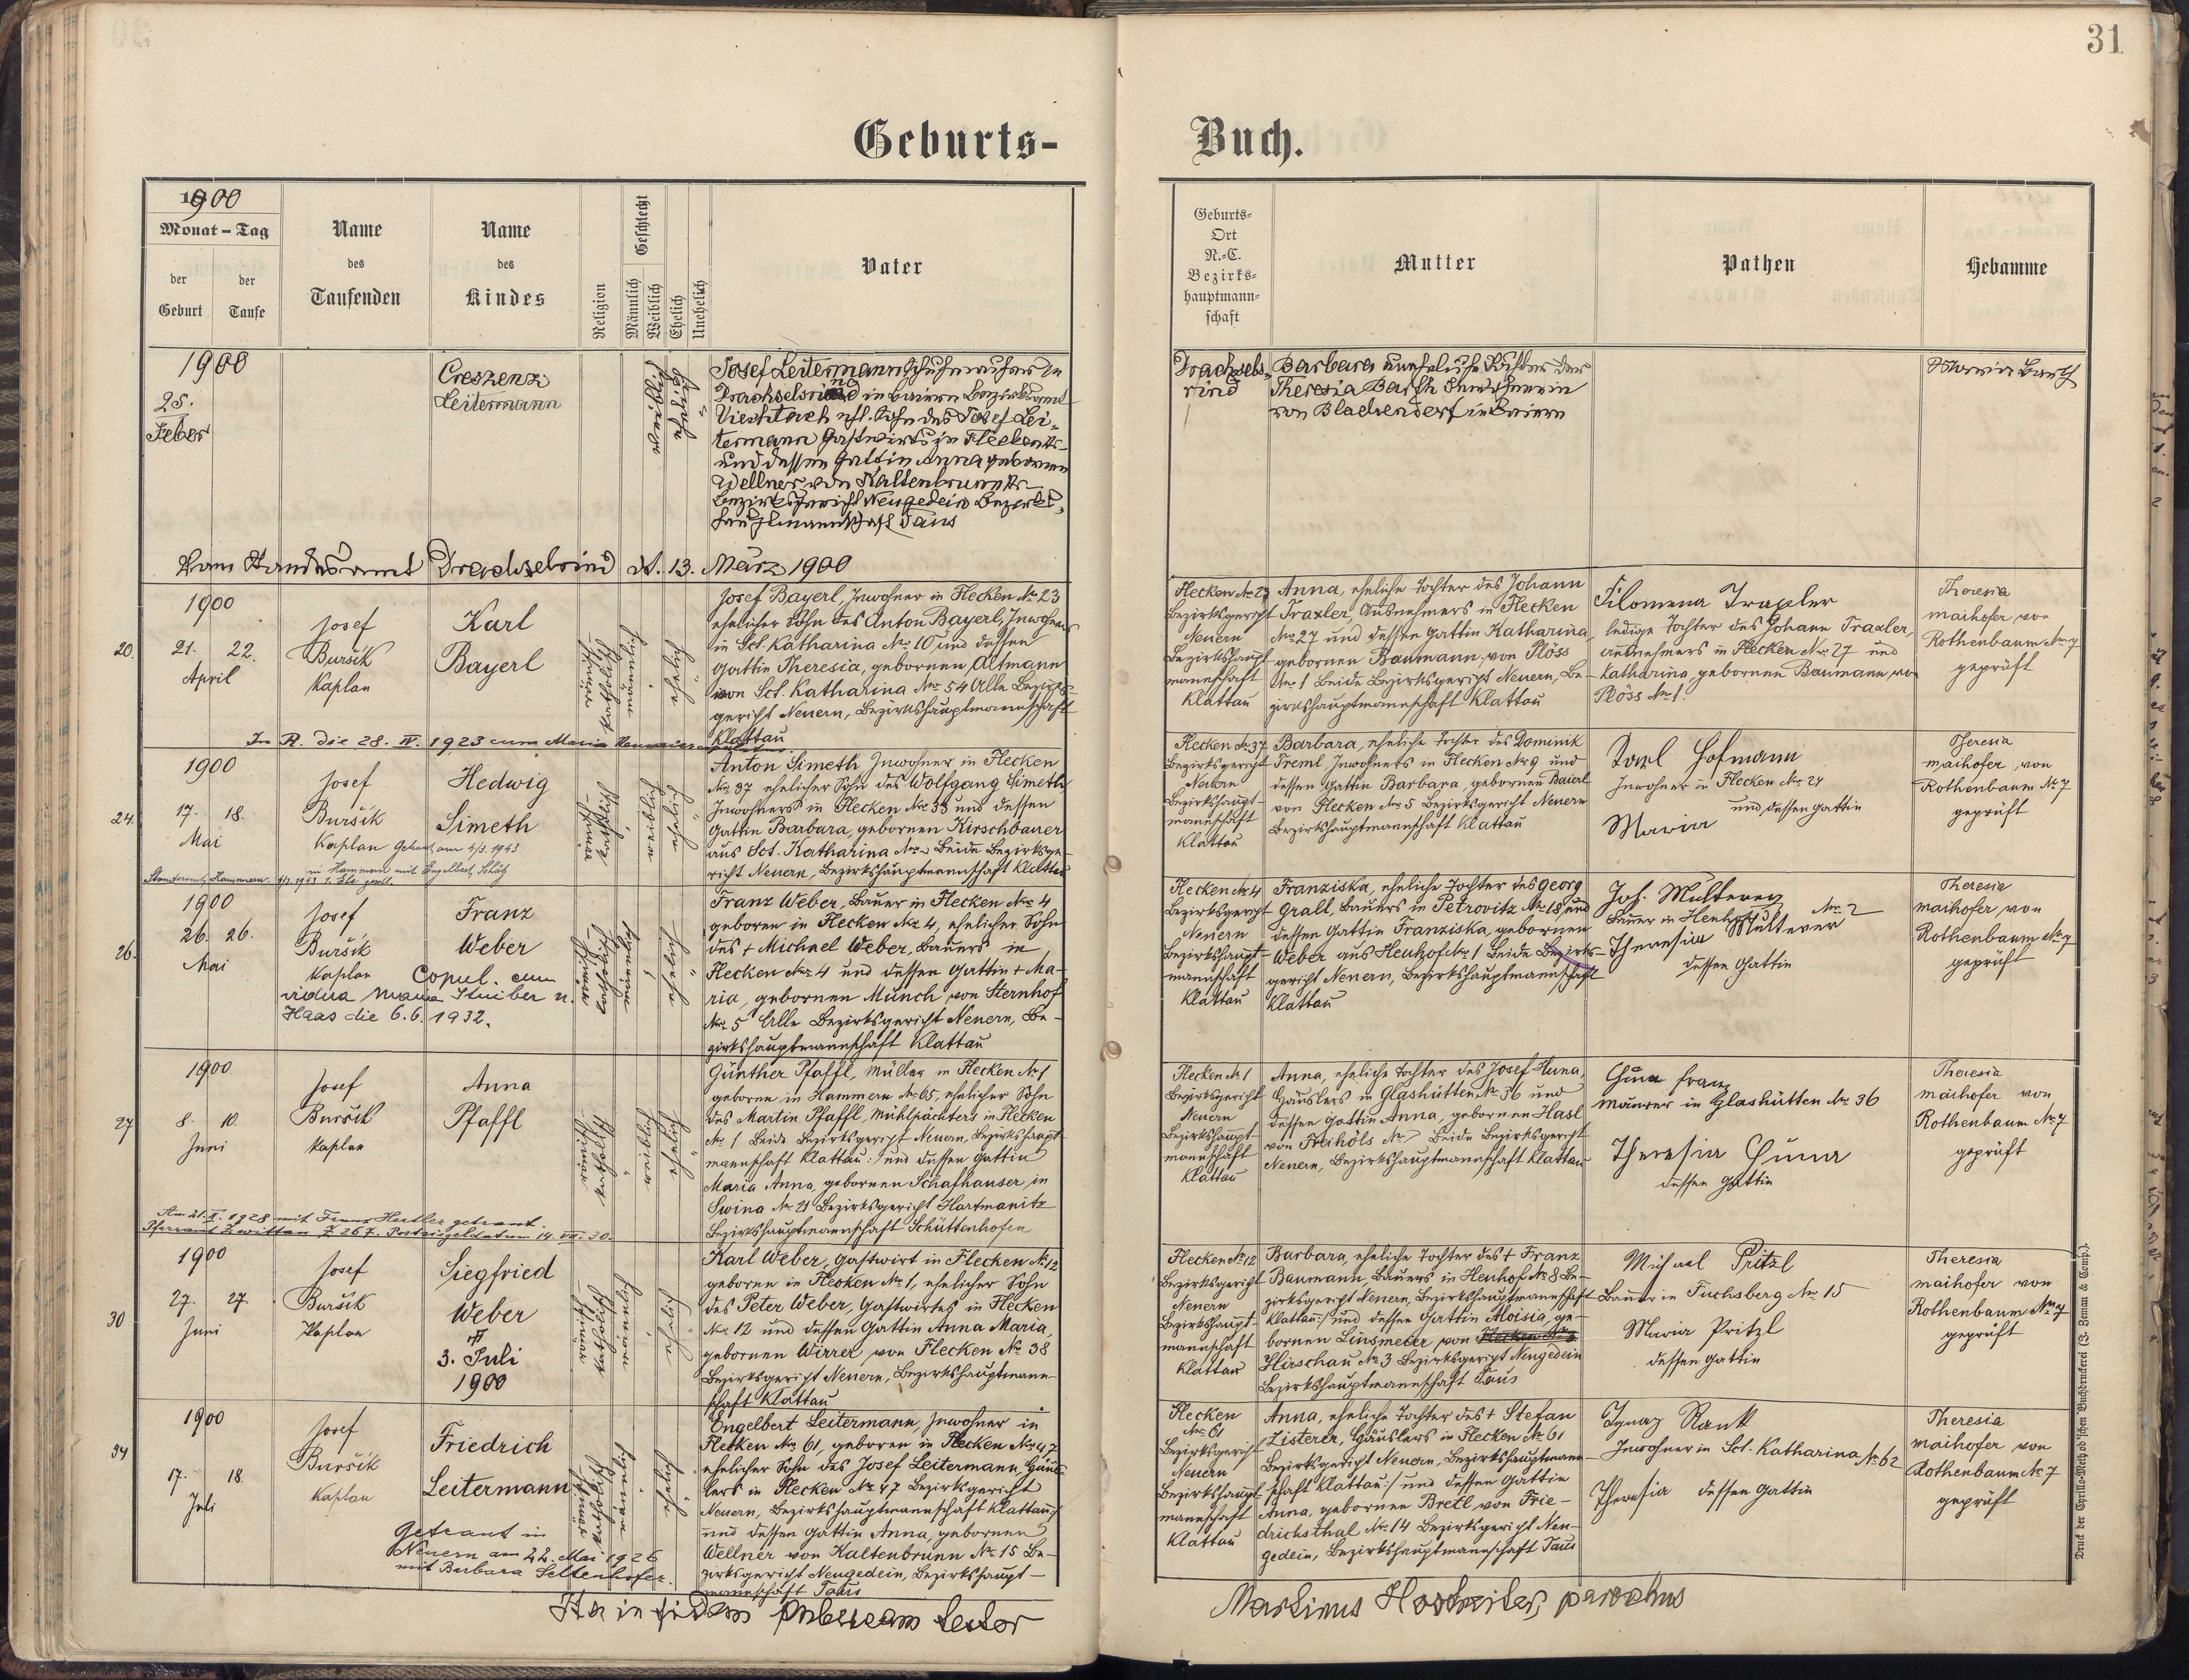 31
Geburts-
Buch.
1900
Monat - Tag
der Geburt
der Taufe
Name des Taufenden
Name des Kindes
Religion
Geschlecht
Männlich
Weiblich
Ehelich
Unehelich
Vater
Geburts-
Ort
N.-C.
Bezirks-
hauptmann-
schaft
Mutter
Pathen
Hebamme
1900
25.
Feber
Creszenz
Leitermann
Josef Leitermann Schuhmacher in
Drachselsried in Baiern Bezirksamt
Viechtach ehl. Sohn des Josef Lei-
termann Gastwirts in Flecken
und dessen Gattin Anna gebornen
Wellner von Kaltenbrunn
Bezirksgericht Neugedein Bezirks-
hauptmannschaft Taus
Drachsels-
ried
Barbara uneheliche Tochter der
Theresia Barth Inwohnerin
von Blachendorf in Baiern
Barth
Vom Standesamt Drachselsried dt. 13. März 1900
20.
1900
21. 22.
April
Josef
Buršik
Kaplan
Karl
Bayerl
Josef Bayerl, Inwohner in Flecken No 23
ehelicher Sohn des Anton Bayerl, Inwohners
in Sct. Katharina No. 10 und dessen
Gattin Theresia, gebornen Altmann
von Sct. Katharina No 54 Alle Bezirks-
gericht Neuern, Bezirkshauptmannschaft
Klattau
Flecken No 23
Bezirksgericht
Neuern
Bezirkshaupt-
mannschaft
Klattau
Anna, eheliche Tochter des Johann
Traxler, Ausnehmers in Flecken
No 27 und dessen Gattin Katharina,
gebornen Baumann, von Plöss
No 1 Beide Bezirksgericht Neuern, Be-
zirkshauptmannschaft Klattau
Filomena Traxler
ledige Tochter des Johann Traxler,
Ausnehmers in Flecken No. 27 und
Katharina, gebornen Baumann von
Plöss No 1.
Theresia
Maihofer von
Rothenbaum No 7
geprüft
In R. die 28. IV. 1923 cum Maria
24.
1900
17. 18.
Mai
Josef
Buršik
Kaplan
Hedwig
Simeth
Getraut am 4/3. 1943
in Hammern mit Engelbert Schätz
Standesamt Hammern. 4/3. 1943 1. Ehe
Anton Simeth, Inwohner in Flecken
No 37 ehelicher Sohn des Wolfgang Simeth
Inwohners in Flecken No 38 und dessen
Gattin Barbara, gebornen Kirschbauer
aus Sct. Katharina No Beide Bezirksge-
richt Neuern, Bezirkshauptmannschaft Klattau
Flecken No 37
Bezirksgericht
Neuern
Bezirkshaupt-
mannschaft
Klattau
Barbara, eheliche Tochter des Dominik
Treml, Inwohners in Flecken No 9 und
dessen Gattin Barbara, gebornen Baierl
von Flecken No 5 Bezirksgericht Neuern
Bezirkshauptmannschaft Klattau
Karl Hofmann
Inwohner in Flecken No 24
und dessen Gattin
Maria
Theresia
Maihofer von
Rothenbaum No 7
geprüft
26.
1900
26. 26.
Mai
Josef
Buršik
Kaplan
Franz
Weber
Copul. cum
vidua Maria Stuiber n.
Haas die 6.6. 1932.
Franz Weber, Bauer in Flecken No 4
geboren in Flecken No 4, ehelicher Sohn
des + Michael Weber, Bauers in
Flecken No 4 und dessen Gattin + Ma-
ria, gebornen Münch von Sternhof
No 5 Alle Bezirksgericht Neuern, Be-
zirkshauptmannschaft Klattau
Flecken No 4
Bezirksgericht
Neuern
Bezirkshaupt-
mannschaft
Klattau
Franziska, eheliche Tochter des Georg
Grall, Bauers in Petrovitz No 18 und
dessen Gattin Franziska, gebornen
Weber aus Heuhof No 1 Beide Bezirks-
gericht Neuern, Bezirkshauptmannschaft
Klattau
Joh. Multerer
Bauer in Heuhof No 2
Theresia Multerer
dessen Gattin
Theresia
Maihofer von
Rothenbaum No 7
geprüft
27
1900
8. 10.
Juni
Josef
Buršik
Kaplan
Anna
Pfaffl
Günther Pfaffl, Müller in Flecken No 1
geboren in Hammern No 65, ehelicher Sohn
des Martin Pfaffl, Mühlpächters in Flecken
No 1 Beide Bezirksgericht Neuern, Bezirkshaupt-
mannschaft Klattau :/ und dessen Gattin
Maria Anna, gebornen Schafhauser in
Swina No 21 Bezirksgericht Hartmanitz
Bezirkshauptmannschaft Schüttenhofen
Flecken No 1
Bezirksgericht
Neuern
Bezirkshaupt-
mannschaft
Klattau
Anna, eheliche Tochter des Josef Kuna,
Häuslers in Glashütten No 36 und
dessen Gattin Anna, gebornen Hasl
von Freihöls No 7 Beide Bezirksgericht
Neuern, Bezirkshauptmannschaft Klattau
Franz
Maurer in Glashütten No 36
Theresia
dessen Gattin
Theresia
Maihofer von
Rothenbaum No 7
geprüft
Am 21. X. 1928 mit Franz Hertler getraut.
Pfarramt Zwittau Z 267. Postsiegeldatum 14. VII. 30.
30
1900
27. 27
Juni
Josef
Buršik
Kaplan
Siegfried
Weber
3. Juli
1900
Karl Weber, Gastwirt in Flecken No 12
geboren in Flecken No 1, ehelicher Sohn
des Peter Weber, Gastwirtes in Flecken
No 12 und dessen Gattin Anna Maria,
gebornen Wirrer von Flecken No 38
Bezirksgericht Neuern, Bezirkshauptmann-
schaft Klattau
Flecken No 12
Bezirksgericht
Neuern
Bezirkshaupt-
mannschaft
Klattau
Barbara, eheliche Tochter des + Franz
Baumann, Bauers in Heuhof No 8 Be-
zirksgericht Neuern, Bezirkshauptmannschaft
Klattau :/ und dessen Gattin Aloisia, ge-
bornen Linsmeier von
Hirschau No 3 Bezirksgericht Neugedein
Bezirkshauptmannschaft Taus
Michael Pritzl
Bauer in Fuchsberg No 15
Maria Pritzl
dessen Gattin
Theresia
Maihofer von
Rothenbaum No 7
geprüft
34
1900
17. 18.
Juli
Josef
Buršik
Kaplan
Friedrich
Leitermann
Getraut in
Neuern am 22. Mai 1926
mit Barbara Seltenhofer.
Engelbert Leitermann, Inwohner in
Flecken No 61, geboren in Flecken No 47
ehelicher Sohn des Josef Leitermann, Häus-
lers in Flecken No 47 Bezirksgericht
Neuern, Bezirkshauptmannschaft Klattau :/
und dessen Gattin Anna, gebornen
Wellner von Kaltenbrunn No 15 Be-
zirksgericht Neugedein, Bezirkshaupt-
mannschaft Taus
Flecken
No 61
Bezirksgericht
Neuern
Bezirkshaupt-
mannschaft
Klattau
Anna, eheliche Tochter des + Stefan
Zisterer, Häuslers in Flecken No 61
Bezirksgericht Neuern, Bezirkshauptmann-
schaft Klattau :/ und dessen Gattin
Anna, gebornen Bretl von Frie-
drichsthal No 14 Bezirksgericht Neu-
gedein, Bezirkshauptmannschaft Taus
Ignaz Rank
Inwohner in Sct. Katharina No 62
Theresia dessen Gattin
Theresia
Maihofer von
Rothenbaum No 7
geprüft
Ita in fidem publicam testor
Martinus parochus
Druck der Cyrillo-Method'schen Buchdruckerei (J. Zeman & Comp.).